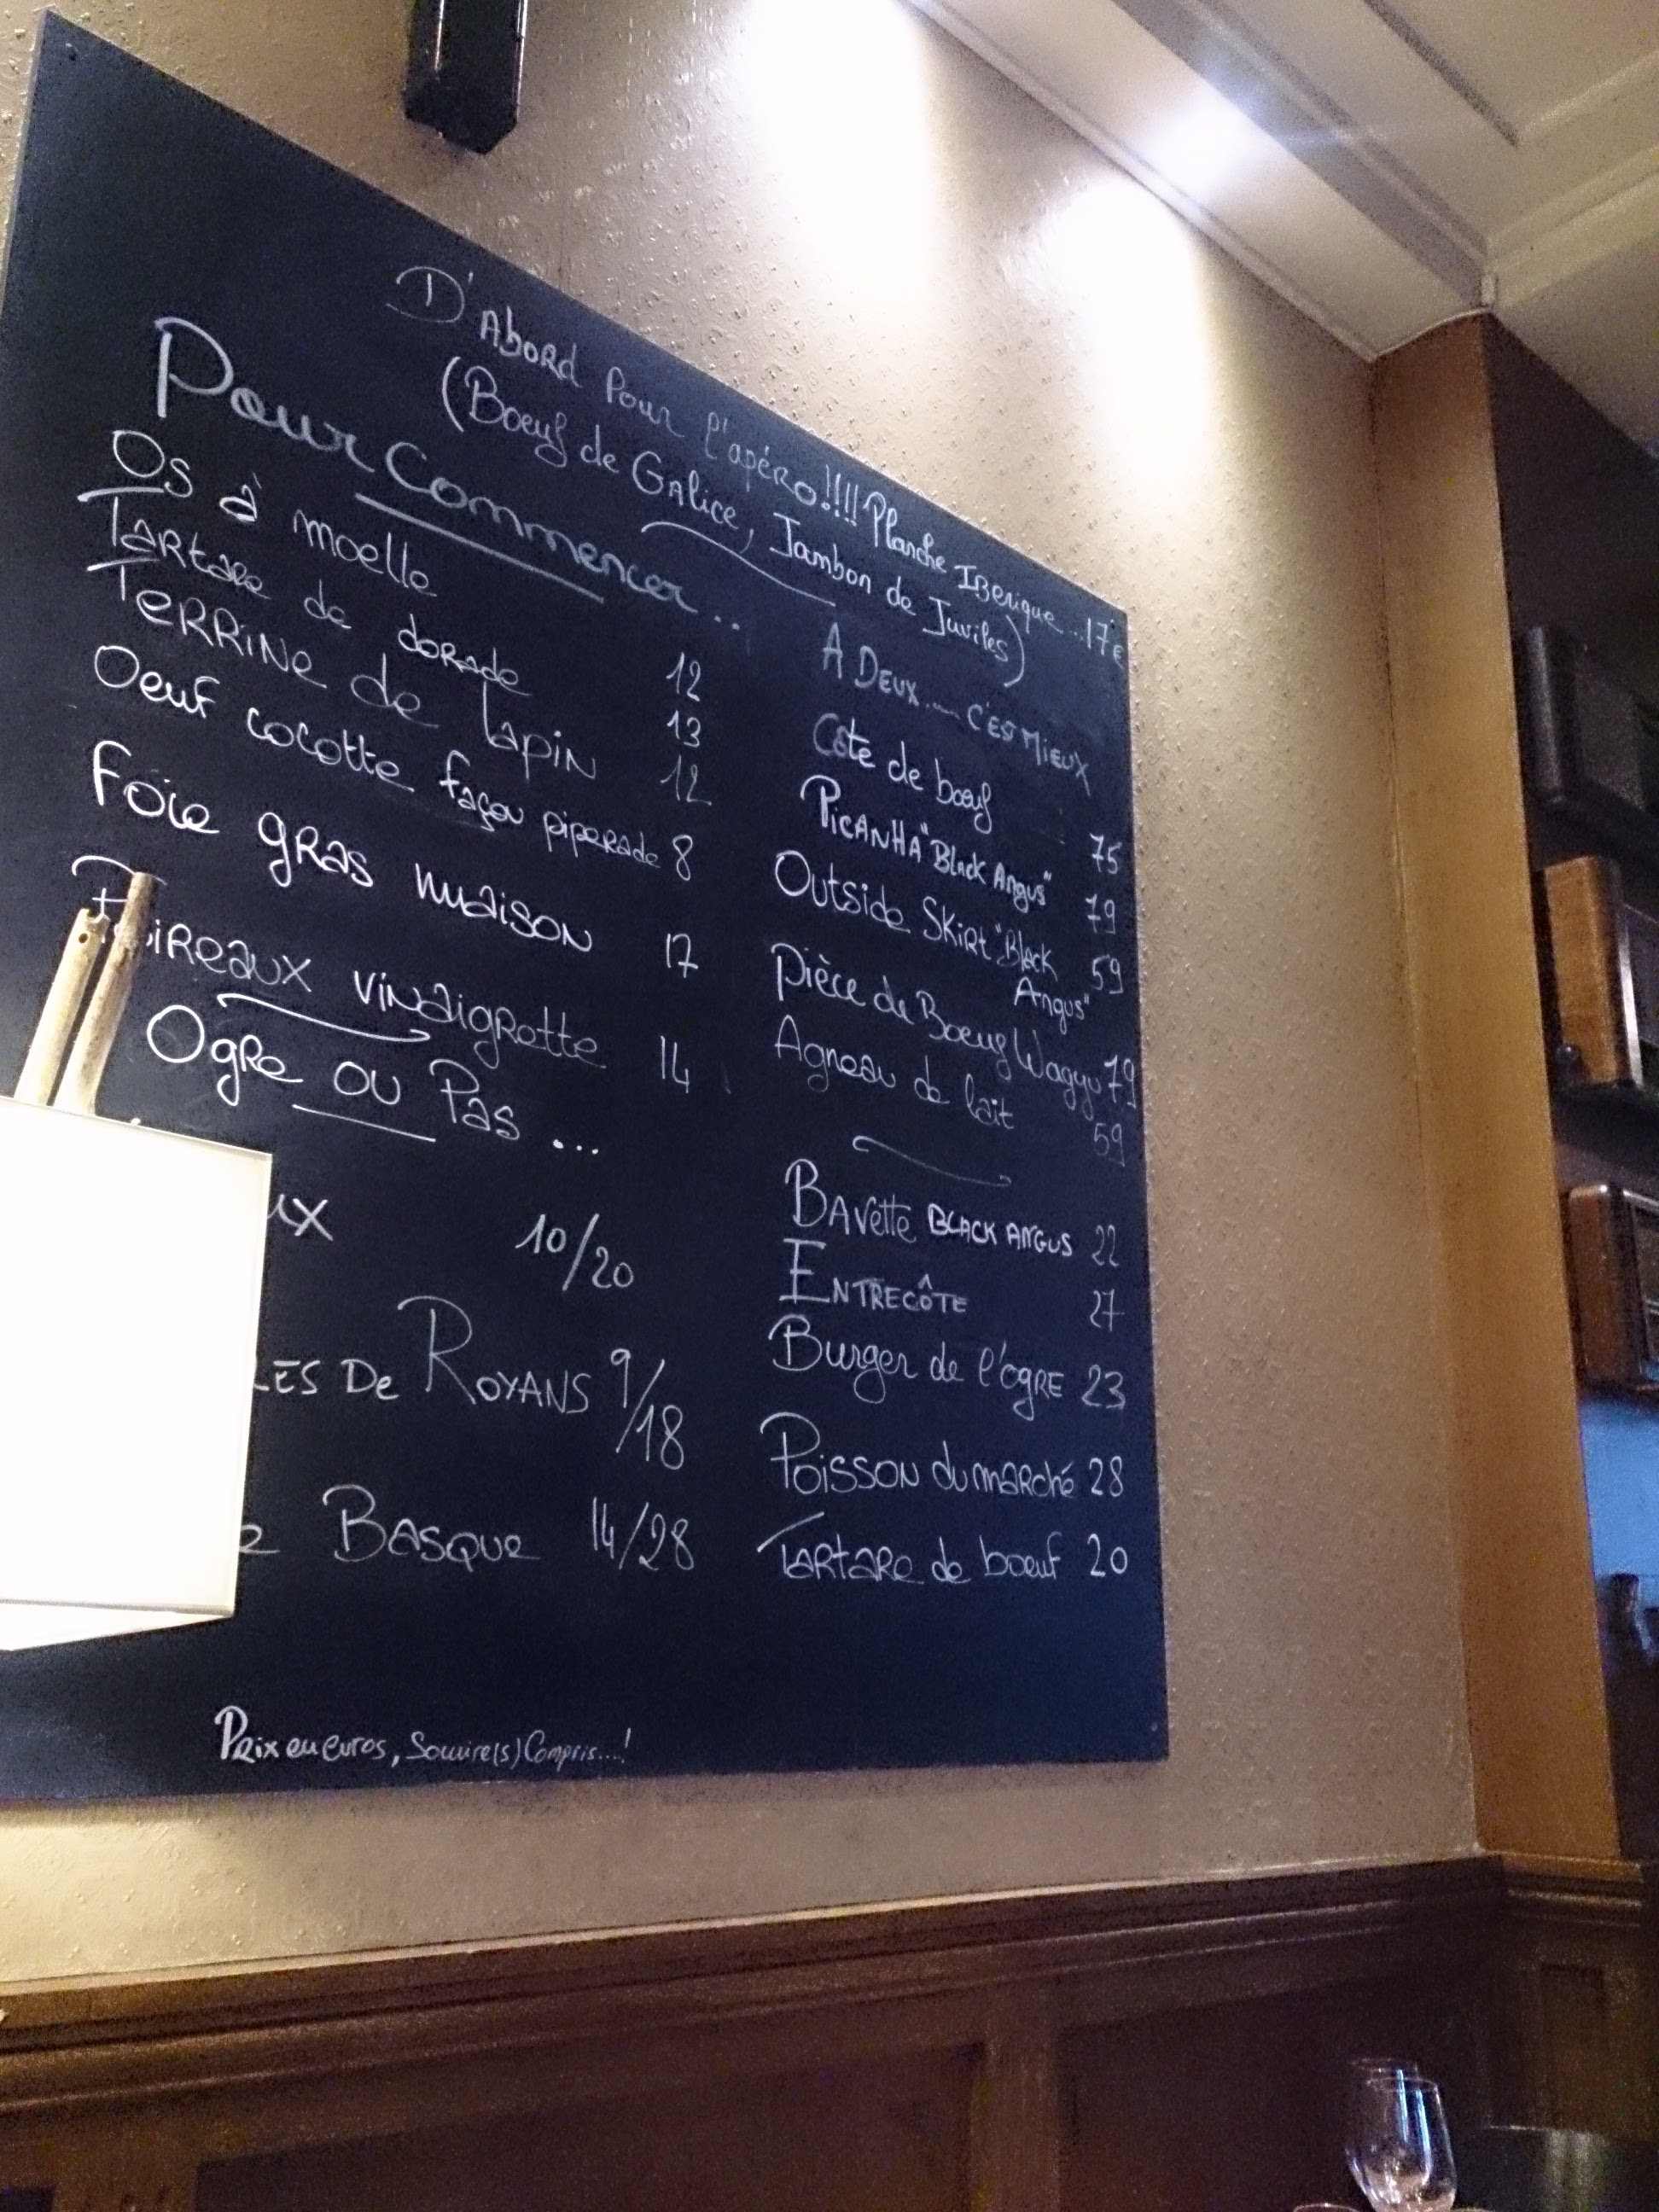 D'Abord Pour l'apéro!!!! Planche IBerique...17€
(Boeuf de Galice, Jambon de Juviles)
Pour Commencer...
Os à moelle 12
Tartare de dorade 13
Terrine de lapin 12
Oeuf cocotte façon piperade 8
Foie gras maison 17
Poireaux vinaigrette 14
Ogre ou Pas...
ux 10/20
LES De ROYANS 9/18
e BASQUE 14/28
A DEUX.... C'EST MIEUX
Côte de boeuf 75
PICANHA "Black Angus" 79
Outside Skirt "Black Angus" 59
Pièce de Boeuf Wagyu 79
Agneau de lait 59
BAvette BLACK ANGUS 22
ENTRECÔTE 27
Burger de l'ogre 23
Poisson du marché 28
Tartare de boeuf 20
Prix en euros, Sourire(s) Compris....!